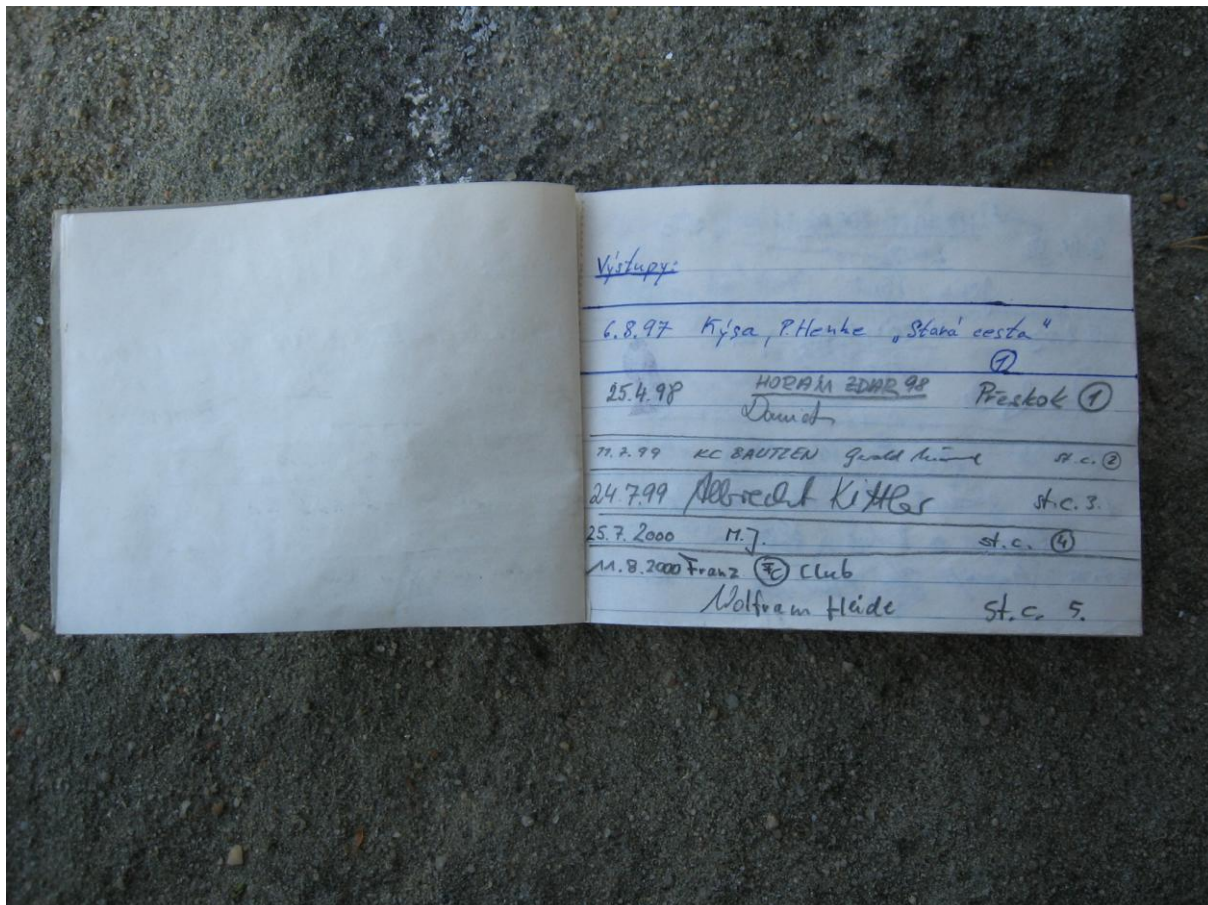 Výstupy:
6.8.97 Kýsa, P. Henke „Stará cesta“
①
25.4.98 HORÁM ZDAR 98 Přeskok ①
Daniel
11.7.99 KC BAUTZEN Gerald st.c. ②
24.7.99 Albrecht Kittler st.c. 3.
25.7.2000 M.J. st.c. ④
11.8.2000 Franz FC Club
Wolfram Heide St.c. 5.